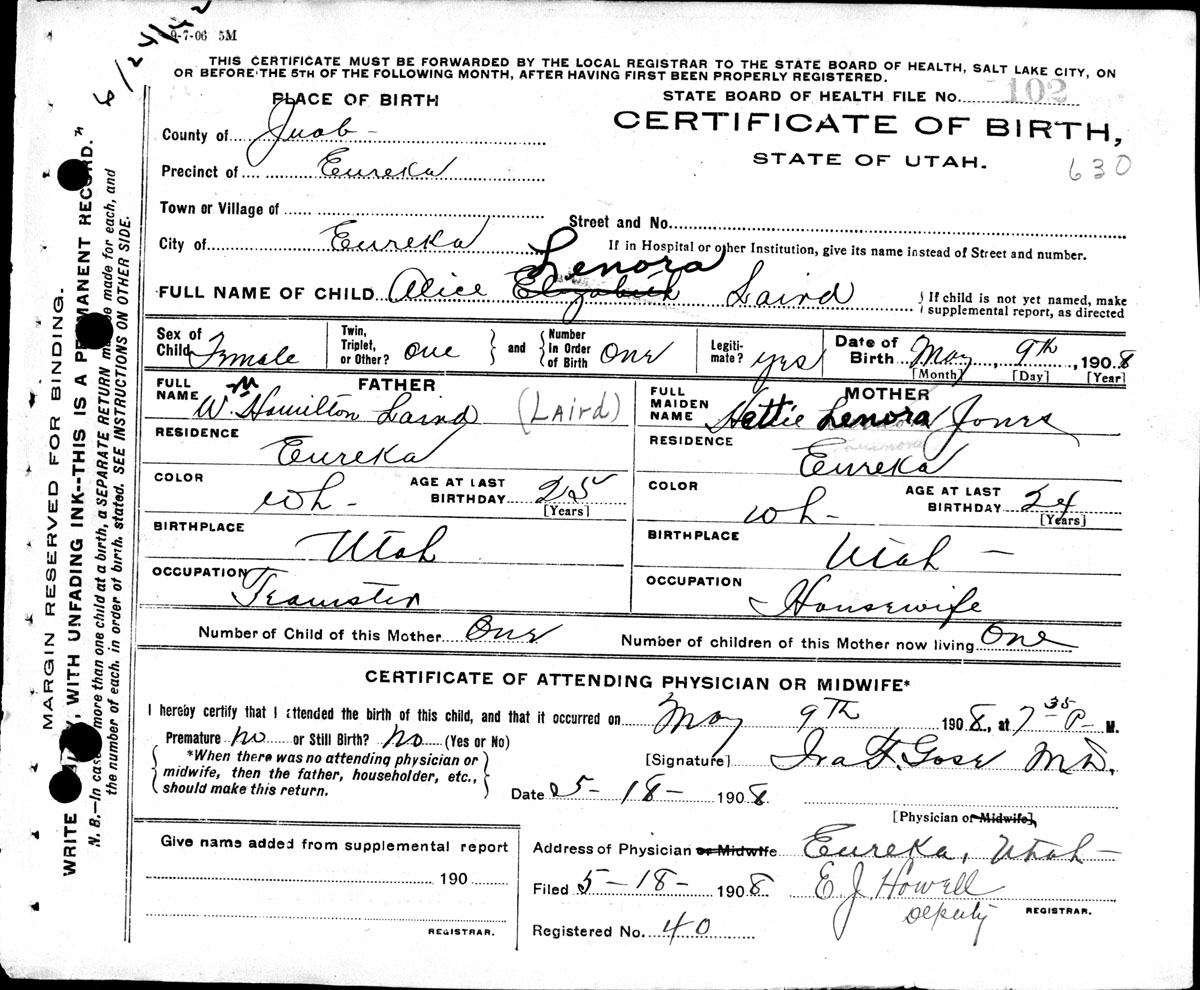 9-7-06 5M
THIS CERTIFICATE MUST BE FORWARDED BY THE LOCAL REGISTRAR TO THE STATE BOARD OF HEALTH, SALT LAKE CITY, ON
OR BEFORE THE 5TH OF THE FOLLOWING MONTH, AFTER HAVING FIRST BEEN PROPERLY REGISTERED.
PLACE OF BIRTH
STATE BOARD OF HEALTH FILE No. 102
County of Juab
CERTIFICATE OF BIRTH,
STATE OF UTAH.
630
Precinct of Eureka
Town or Village of
Street and No.
City of Eureka
If in Hospital or other Institution, give its name instead of Street and number.
Lenora
FULL NAME OF CHILD Alice Elizabeth Laird
If child is not yet named, make
supplemental report, as directed
Sex of Child Female
Twin, Triplet, or Other? One
and
Number In Order of Birth One
Legitimate? yes
Date of Birth May 9th, 1908
[Month] [Day] [Year]
FATHER
FULL NAME Wm Hamilton Laird (LAIRD)
RESIDENCE
Eureka
COLOR wh-
AGE AT LAST BIRTHDAY 25
[Years]
BIRTHPLACE
Utah
OCCUPATION
Teamster
MOTHER
FULL MAIDEN NAME Hettie Lenora Jones
RESIDENCE
Eureka
COLOR wh-
AGE AT LAST BIRTHDAY 24
[Years]
BIRTHPLACE
Utah —
OCCUPATION
Housewife
Number of Child of this Mother One
Number of children of this Mother now living One
CERTIFICATE OF ATTENDING PHYSICIAN OR MIDWIFE*
I hereby certify that I attended the birth of this child, and that it occurred on May 9th 1908, at 7 35 P M.
Premature no or Still Birth? no (Yes or No)
*When there was no attending physician or
midwife, then the father, householder, etc.,
should make this return.
[Signature] Ira F. Gose M.D.
Date 5-18- 1908
[Physician or Midwife]
Give name added from supplemental report
190
REGISTRAR.
Address of Physician or Midwife Eureka, Utah
Filed 5-18- 1908 E. J. Howell
Deputy REGISTRAR.
Registered No. 40
MARGIN RESERVED FOR BINDING.
WITH UNFADING INK--THIS IS A PERMANENT RECORD.
N. B.—In case more than one child at a birth, a SEPARATE RETURN must be made for each, and
the number of each, in order of birth, stated. SEE INSTRUCTIONS ON OTHER SIDE.